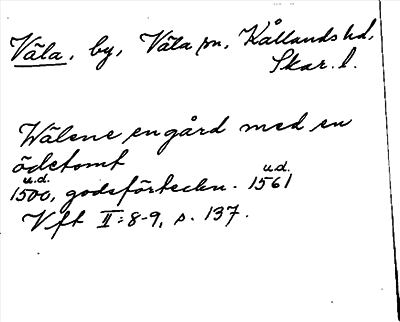 Väla, by, Väla sn, Kållands hd,
Skar. l.
Wälene en gård med en
ödetomt
u.d. u.d.
1500, godsförteckn. 1561
Vft II:8-9, s. 137.